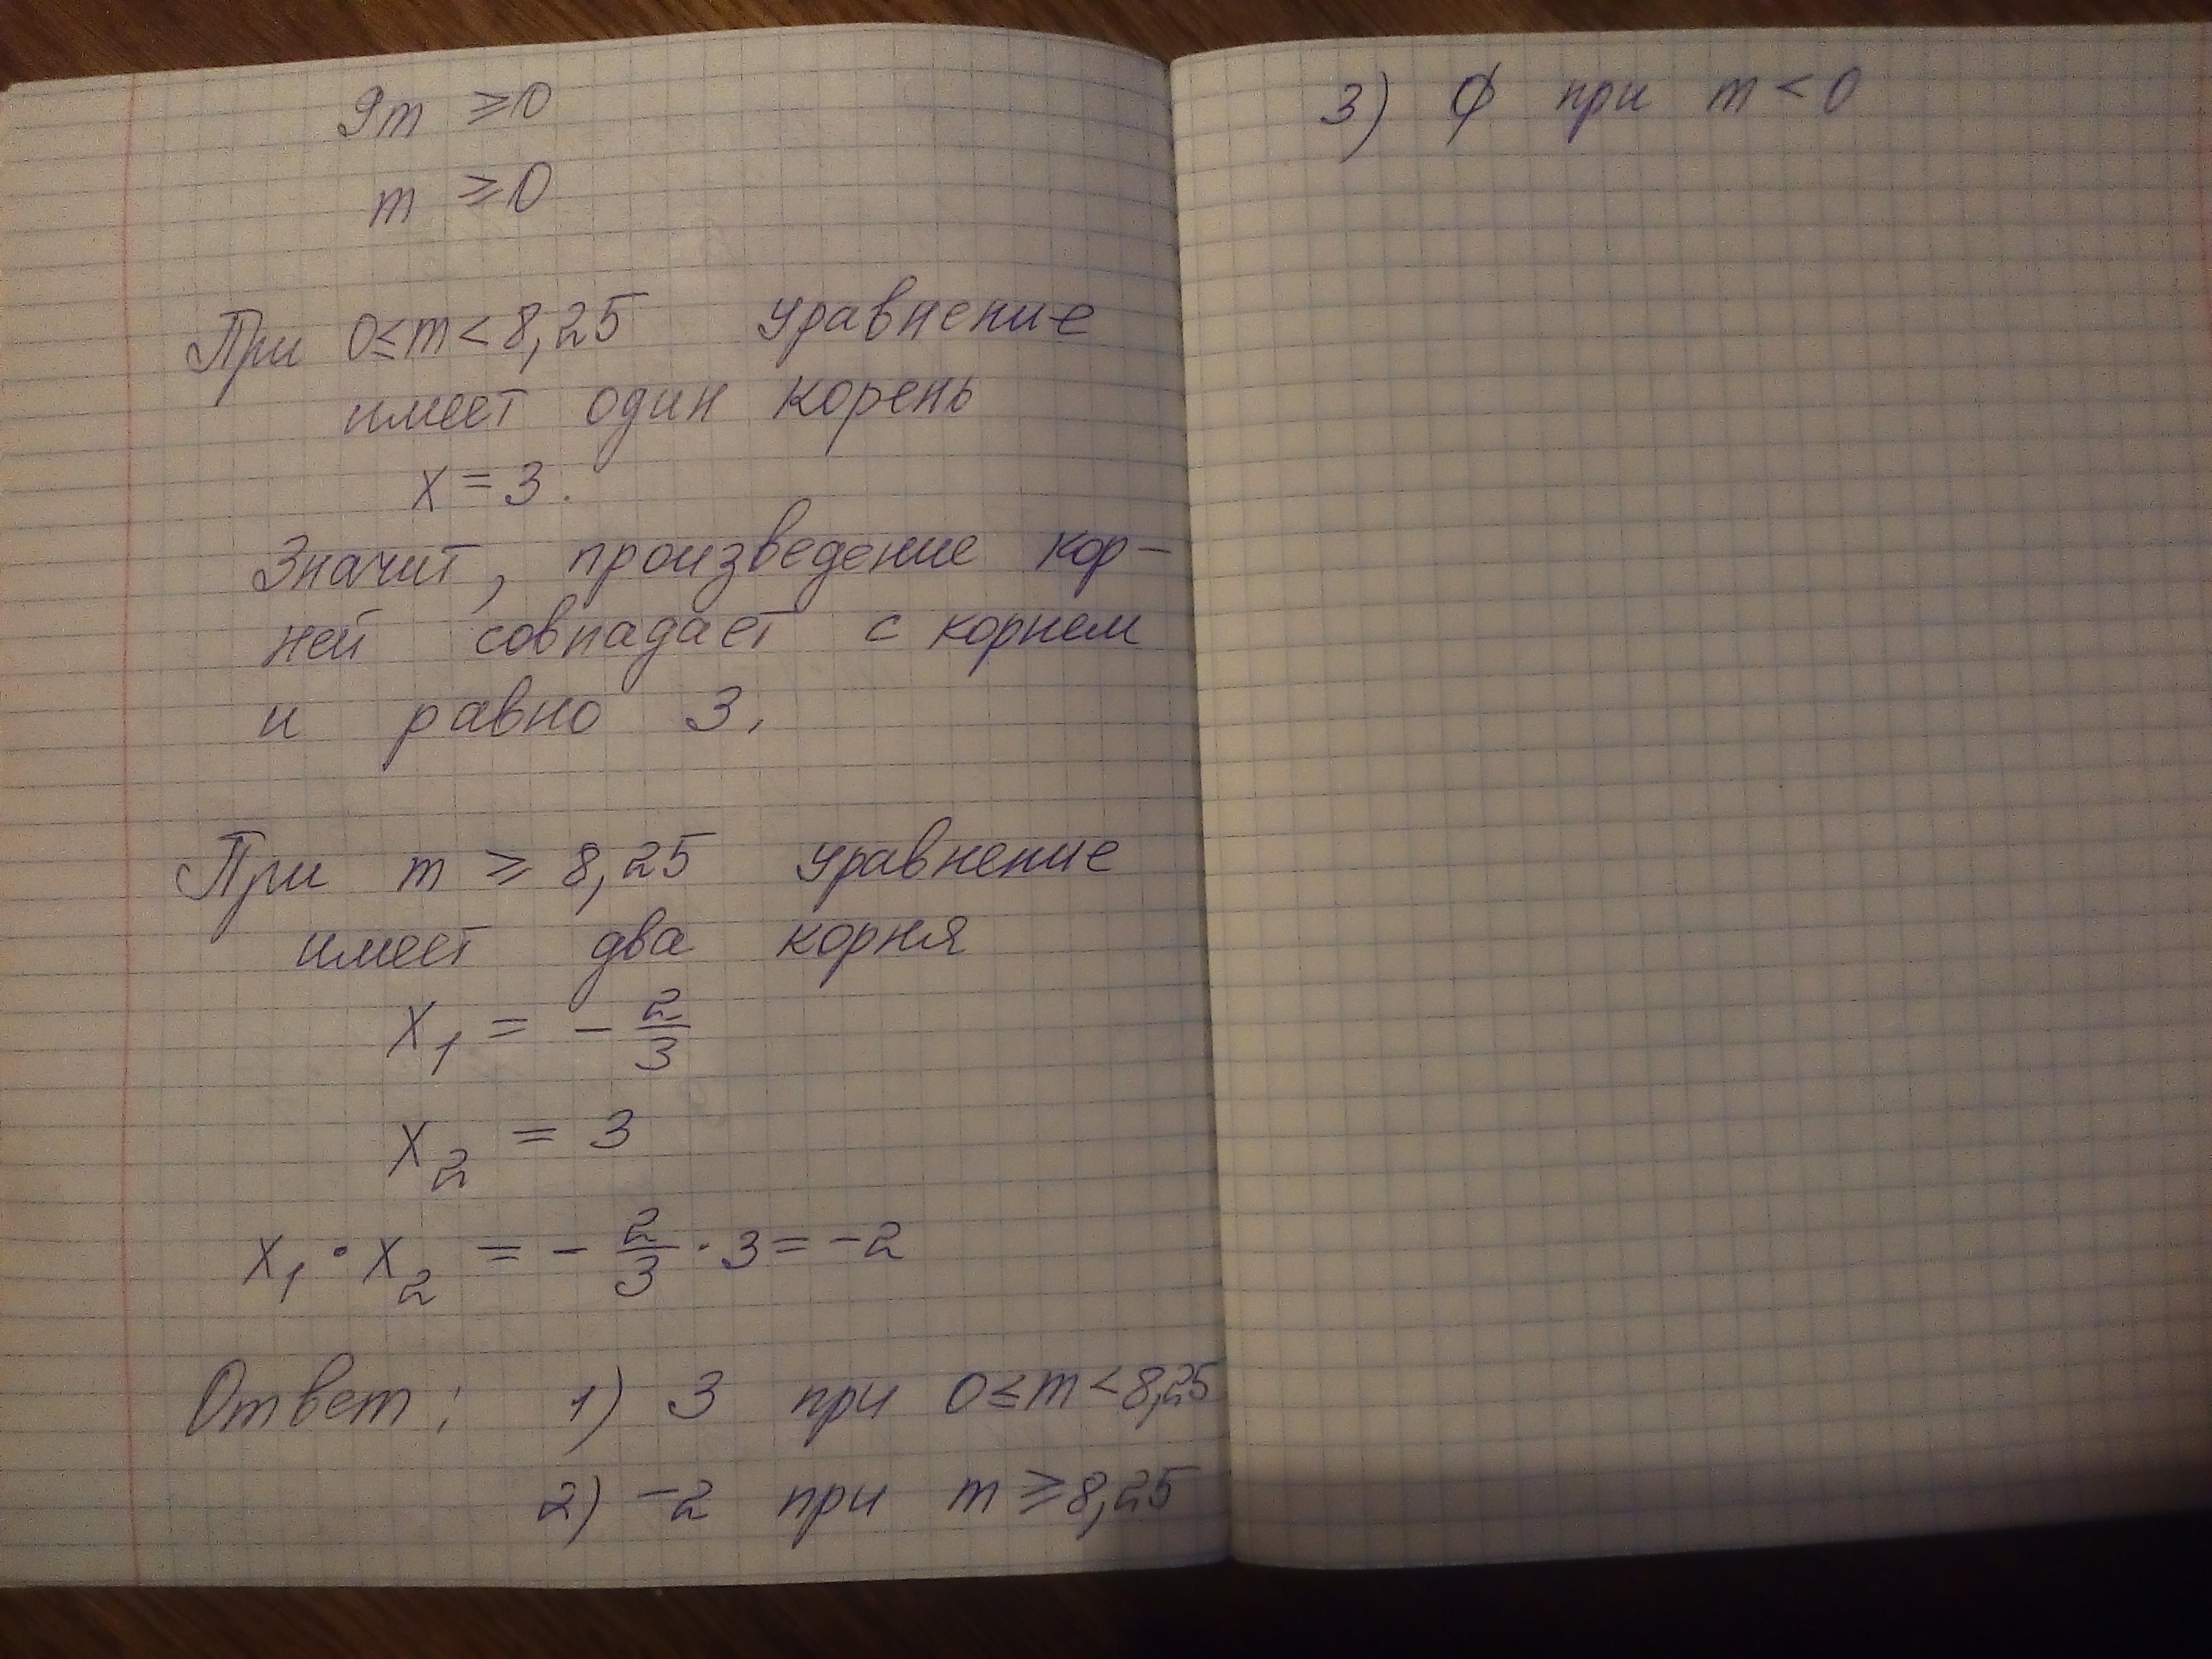 9m ≥ 0
m ≥ 0
При 0 ≤ m < 8,25 уравнение
имеет один корень
x = 3.
Значит, произведение кор-
ней совпадает с корнем
и равно 3.
При m ≥ 8,25 уравнение
имеет два корня
x₁ = - 2/3
x₂ = 3
x₁ · x₂ = - 2/3 · 3 = -2
Ответ: 1) 3 при 0 ≤ m < 8,25
2) -2 при m ≥ 8,25
3) ∅ при m < 0